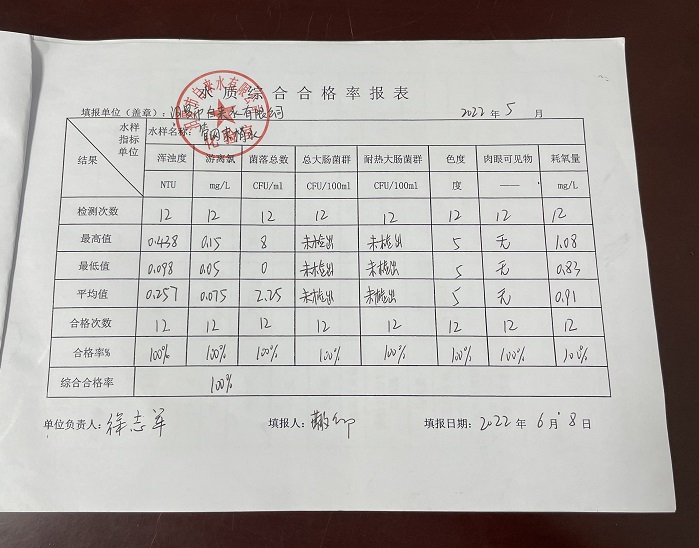 水质综合合格率报表
填报单位（盖章）： 市自来水有限公司 2022年5月
水样 指标 单位 结果 水样名称：管网末梢水
浑浊度 游离氯 菌落总数 总大肠菌群 耐热大肠菌群 色度 肉眼可见物 耗氧量
NTU mg/L CFU/ml CFU/100ml CFU/100ml 度 —— mg/L
检测次数 12 12 12 12 12 12 12 12
最高值 0.438 0.15 8 未检出 未检出 5 无 1.08
最低值 0.098 0.05 0 未检出 未检出 5 无 0.83
平均值 0.257 0.075 2.25 未检出 未检出 5 无 0.91
合格次数 12 12 12 12 12 12 12 12
合格率% 100% 100% 100% 100% 100% 100% 100% 100%
综合合格率 100%
单位负责人：徐志军 填报人： 填报日期：2022年6月8日